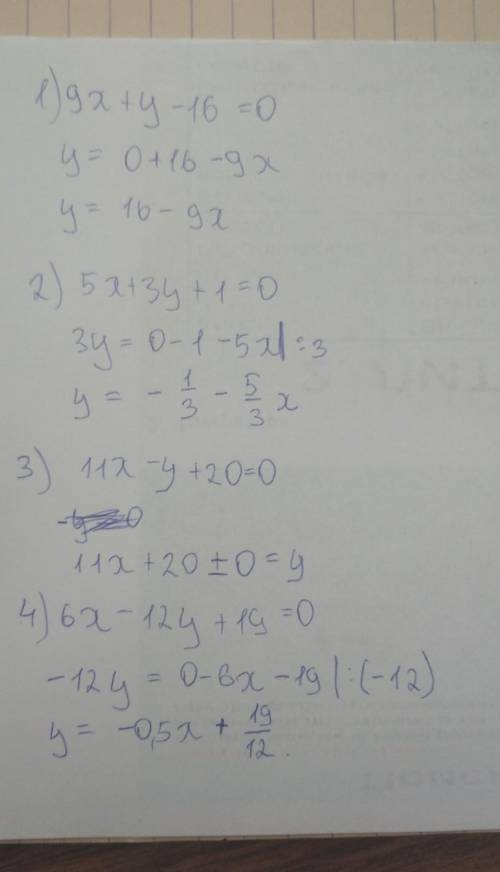 1) 9x + y - 16 = 0
y = 0 + 16 - 9x
y = 16 - 9x
2) 5x + 3y + 1 = 0
3y = 0 - 1 - 5x | : 3
y = - 1/3 - 5/3 x
3) 11x - y + 20 = 0
11x + 20 ± 0 = y
4) 6x - 12y + 19 = 0
-12y = 0 - 6x - 19 | : (-12)
y = -0,5x + 19/12.